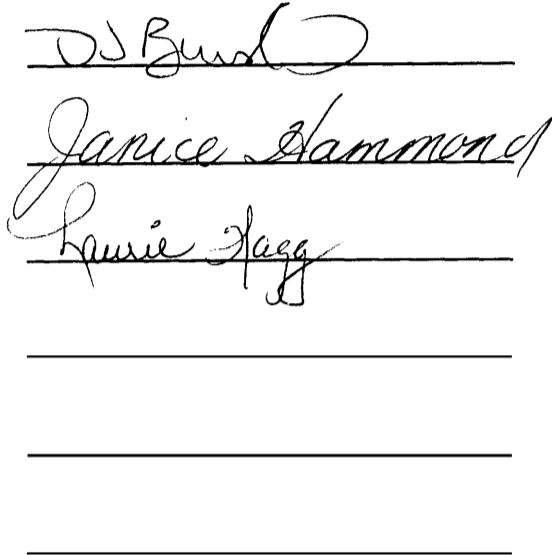 DJ
Janice Hammond
Laurie Hagg